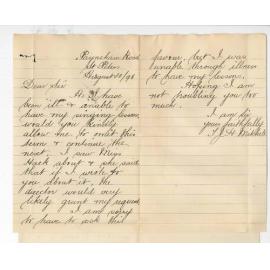 Payneham Road
St Peters
August 30/98
Dear Sir
As I have
been ill & unable to
have my singing lesson
would you kindly
allow me to omit this
term & continue the
next. I saw Miss
Hack about & she said
that if I wrote to
you about it, the
director would very
likely grant my request
I am sorry
to have to ask this
favour, but I was
unable through illness
to have my lessons.
Hoping I am
not troubling you too
much.
I am Sir
Yours faithfully